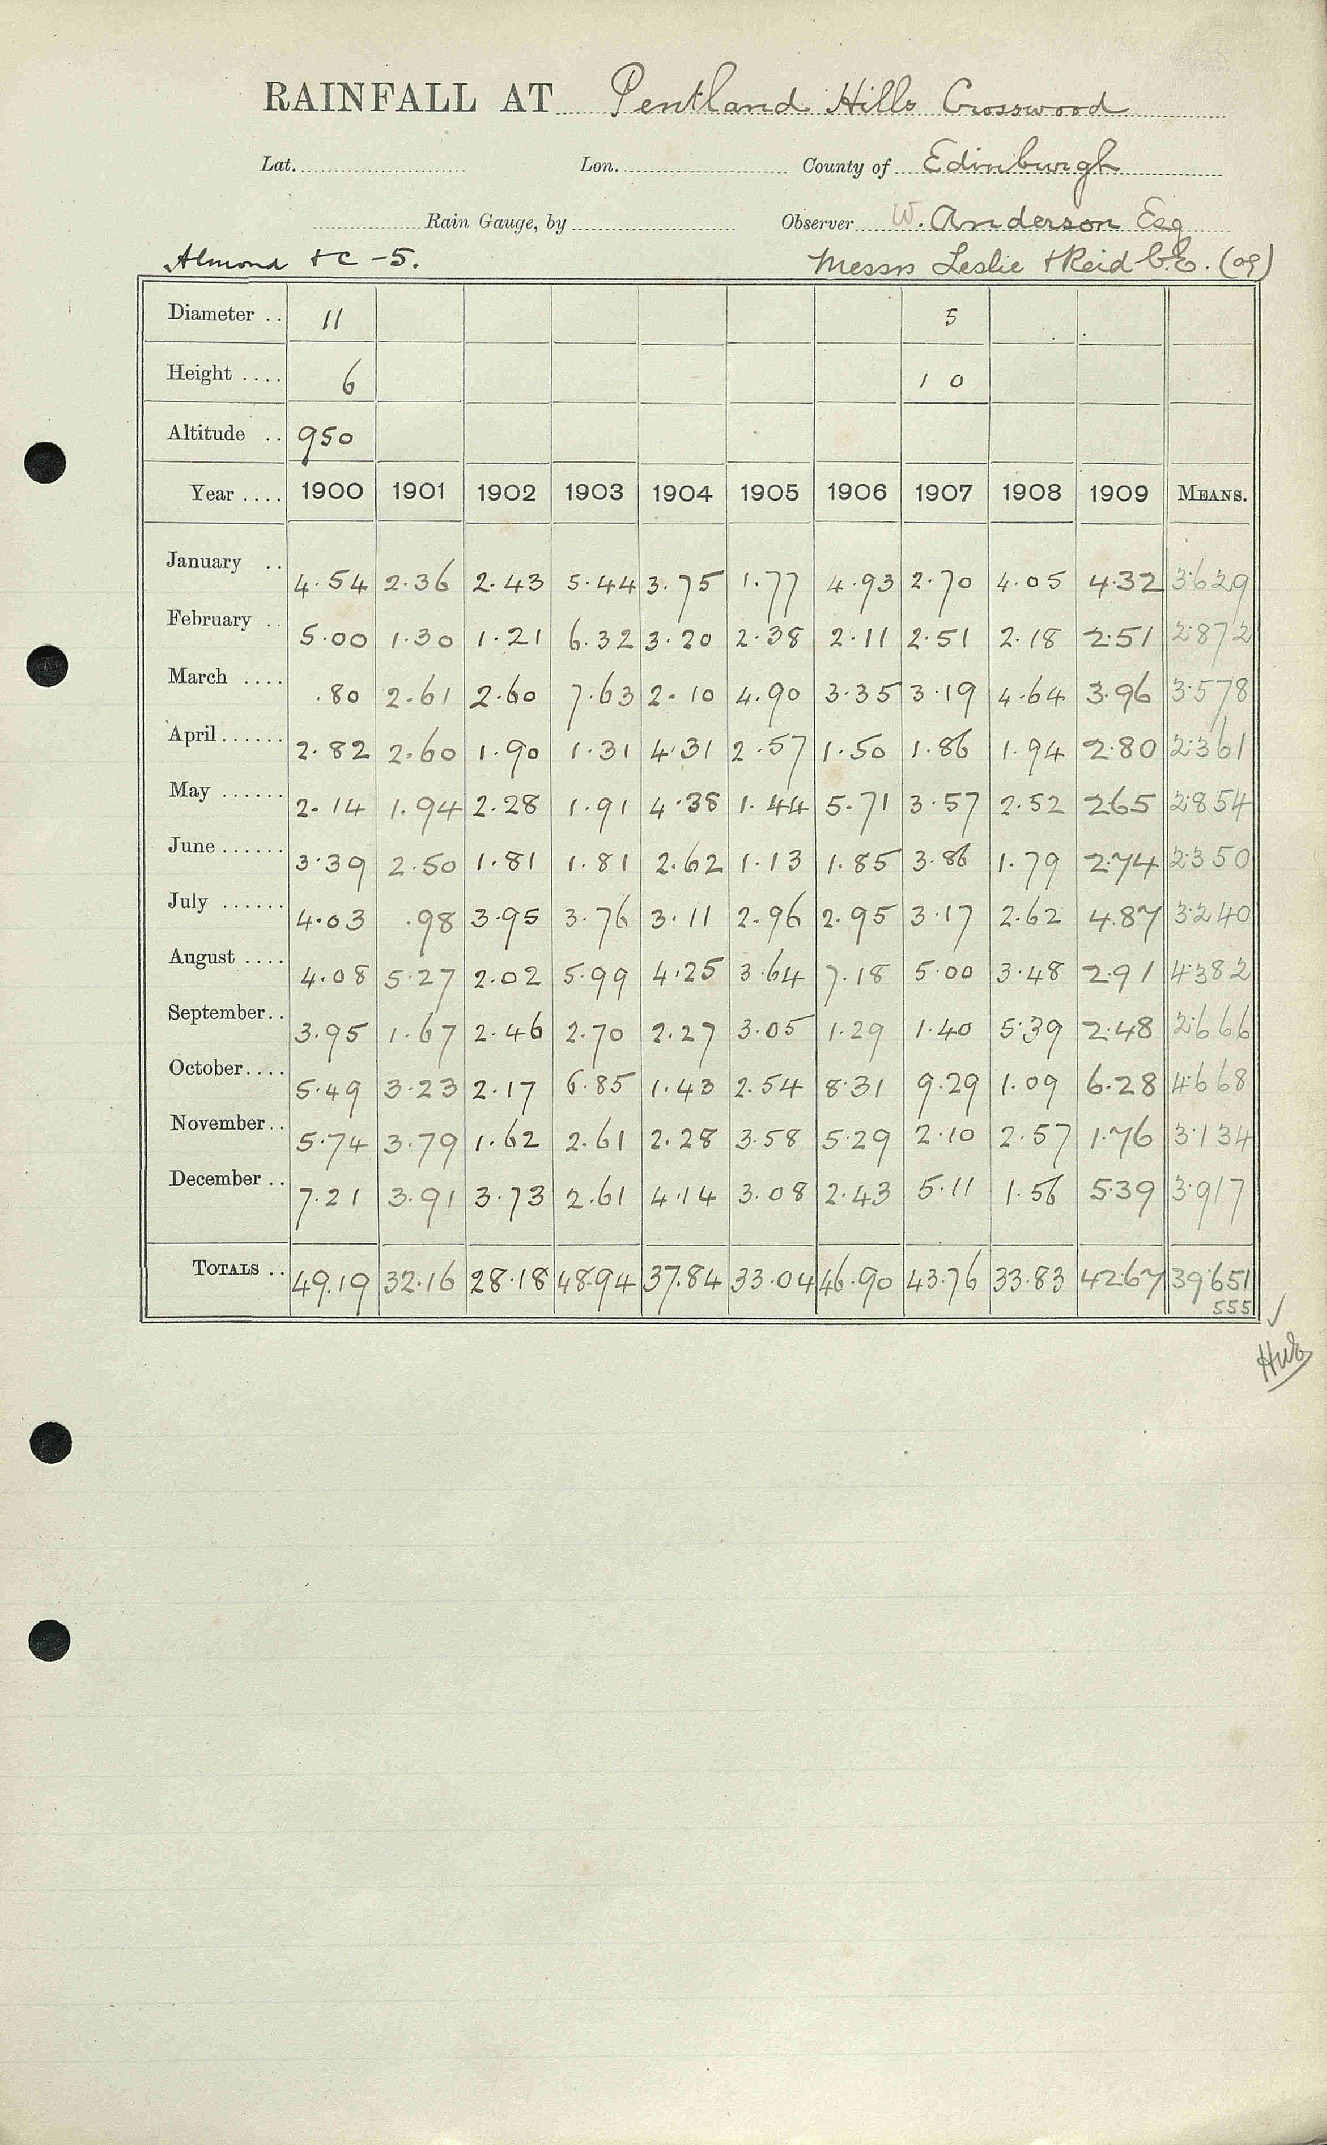 RAINFALL AT Pentland Hills Crosswood
Lat. Lon. County of Edinburgh
Rain Gauge, by Observer W. Anderson Esq
Almond &c -5. Messrs Leslie & Reid C.E. (09)
Diameter .. 11 5
Height .... 6 1 0
Altitude .. 950
Year .... 1900 1901 1902 1903 1904 1905 1906 1907 1908 1909 MEANS.
January .. 4.54 2.36 2.43 5.44 3.75 1.77 4.93 2.70 4.05 4.32 3.629
February .. 5.00 1.30 1.21 6.32 3.20 2.38 2.11 2.51 2.18 2.51 2.872
March .... .80 2.61 2.60 7.63 2.10 4.90 3.35 3.19 4.64 3.96 3.578
April ...... 2.82 2.60 1.90 1.31 4.31 2.57 1.50 1.86 1.94 2.80 2.361
May ...... 2.14 1.94 2.28 1.91 4.38 1.44 5.71 3.57 2.52 2.65 2.854
June ...... 3.39 2.50 1.81 1.81 2.62 1.13 1.85 3.86 1.79 2.74 2.350
July ...... 4.03 .98 3.95 3.76 3.11 2.96 2.95 3.17 2.62 4.87 3.240
August .... 4.08 5.27 2.02 5.99 4.25 3.64 7.18 5.00 3.48 2.91 4.382
September .. 3.95 1.67 2.46 2.70 2.27 3.05 1.29 1.40 5.39 2.48 2.666
October .... 5.49 3.23 2.17 6.85 1.43 2.54 8.31 9.29 1.09 6.28 4.668
November .. 5.74 3.79 1.62 2.61 2.28 3.58 5.29 2.10 2.57 1.76 3.134
December .. 7.21 3.91 3.73 2.61 4.14 3.08 2.43 5.11 1.56 5.39 3.917
TOTALS .. 49.19 32.16 28.18 48.94 37.84 33.04 46.90 43.76 33.83 42.67 39.651
555